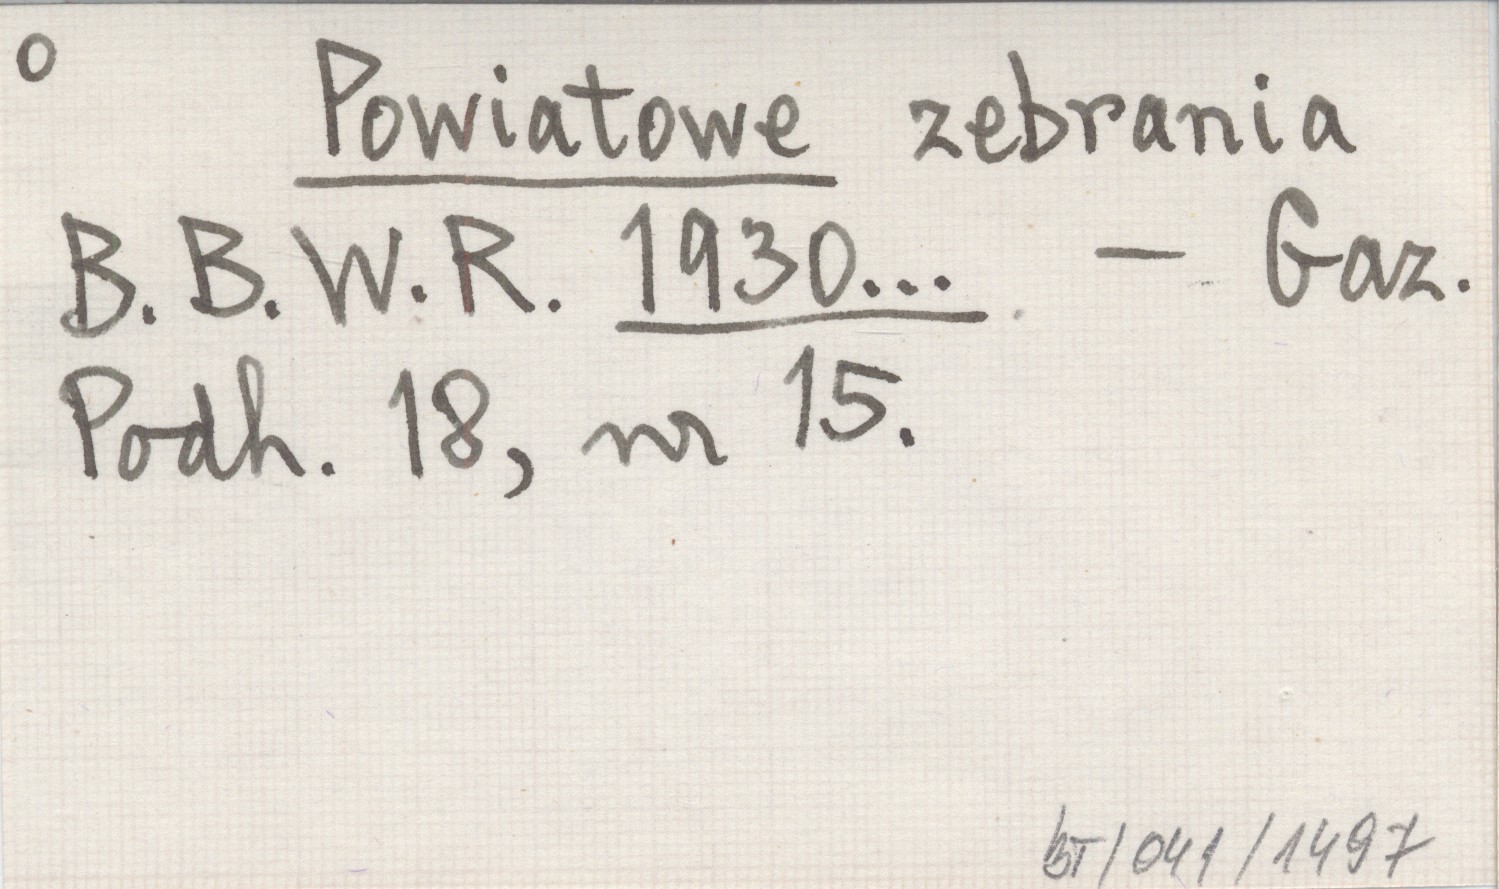 o
Powiatowe zebrania
B.B.W.R. 1930... – Gaz.
Podh. 18, nr 15.
BT/041/1497